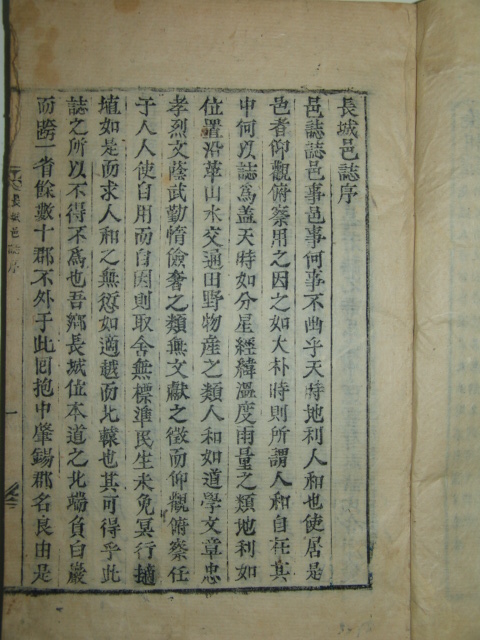 長城邑誌序
邑誌誌邑事邑事何事不曲乎天時地利人和也使居是
邑者仰觀俯察用之因之如大朴時則所謂人和自在其
中何以誌爲盖天時如分星經緯溫度雨量之類地利如
位置沿革山水交通田野物產之類人和如道學文章忠
孝烈文蔭武勤惰儉奢之類無文献之徵而仰觀俯察任
于人人使自用而自因則取舍無標準民生未免冥行擿
埴如是而求人和之無愆如適越而北轅也其可得乎此
誌之所以不得不爲也吾鄉長城位本道之北端負白巖
而蹲一省餘數十郡不外于此回抱中肇錫郡名良由是
長城邑誌序
一